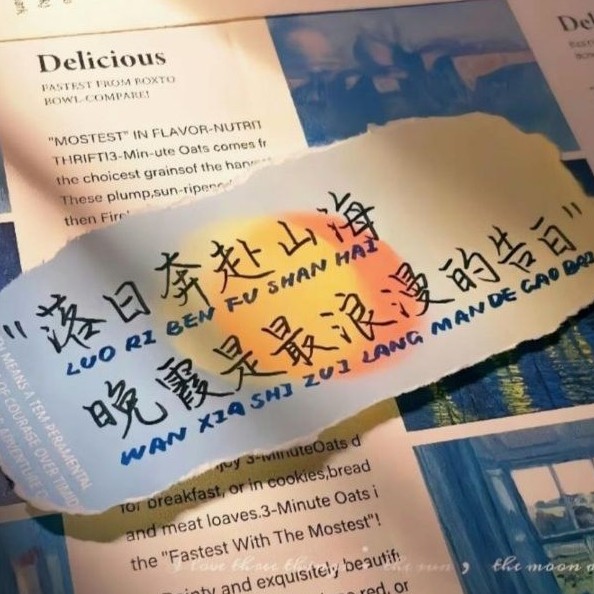 Delicious
FASTEST FROM BOXTO
BOWL-COMPARE!
"MOSTEST" IN FLAVOR-NUTRIT
THRIFT!3-Min-ute Oats comes fr
the choicest grainsof the
These plump,sun-ripen
then
"落日奔赴山海
LUO RI BEN FU SHAN HAI
晚霞是最浪漫的告白"
WAN XIA SHI ZUI LANG MAN DE GAO BAI
MEANS A TEM PERAMENTAL
OF COURAGE OVER TIMID
3-MinuteOats d
for breakfast, or in cookies,bread
and meat loaves.3-Minute Oats i
the "Fastest With The Mostest"!
ainty and exquisitely beautif
red, or
Del
I love three things: the sun, the moon